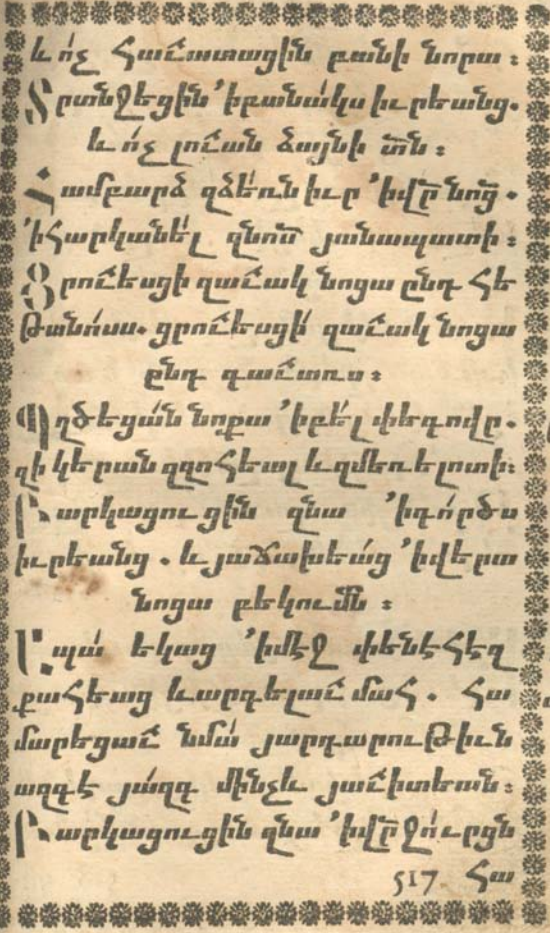 և ո՛չ հաւատացին բանի նորա ։
Տրտնջեցին ՚ի բանակս իւրեանց.
և ո՛չ լուան ձայնի տ՞ն ։
Համբարձ զձեռն իւր ՚ի վր՞ նոց՞ .
՚ի հարկանե՛լ զնոս՞ յանապատի ։
Ցրուեսցի զաւակ նոցա ընդ հե
թանո՛սս. ցրուեսցի՛ զաւակ նոցա
ընդ գաւառս ։
Պղծեցա՛ն նոքա ՚ի բե՛լ փեգովր.
զի կերան զզոհեալ և զմեռելոտի։
Բարկացուցին զնա ՚ի գո՛րծս
իւրեանց . և յաճախեա՛ց ՚ի վերա
նոցա բեկումն ։
Ապա՛ եկաց ՚ի մէջ փենէհէզ
քահեաց և արգելաւ մահ . Հա
մարեցաւ նմա՛ յարդարութիւն
ազգէ յա՛զգ մինչև յաւիտեան։
Բարկացուցին զնա ՚ի վր՞ ջո՛ւրցն
517 Հա